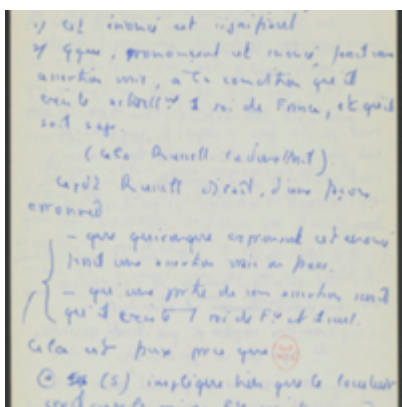 1) cet énoncé est significatif
2) qqun, prononçant cet énoncé, ferait une
assertion vraie, à la condition que il
existe actuellt 1 roi de France, et qu'il
soit sage.
(cela Russell l'admettrait).
Russell dirait, d'une façon
erronnée
— que quiconque exprimant cet énoncé
ferait une assertion vraie ou fausse.
— que une partie de son assertion serait
qu'il existe 1 roi de Fce et 1 seul.
Cela est faux parce que
(S) implique bien que le locuteur